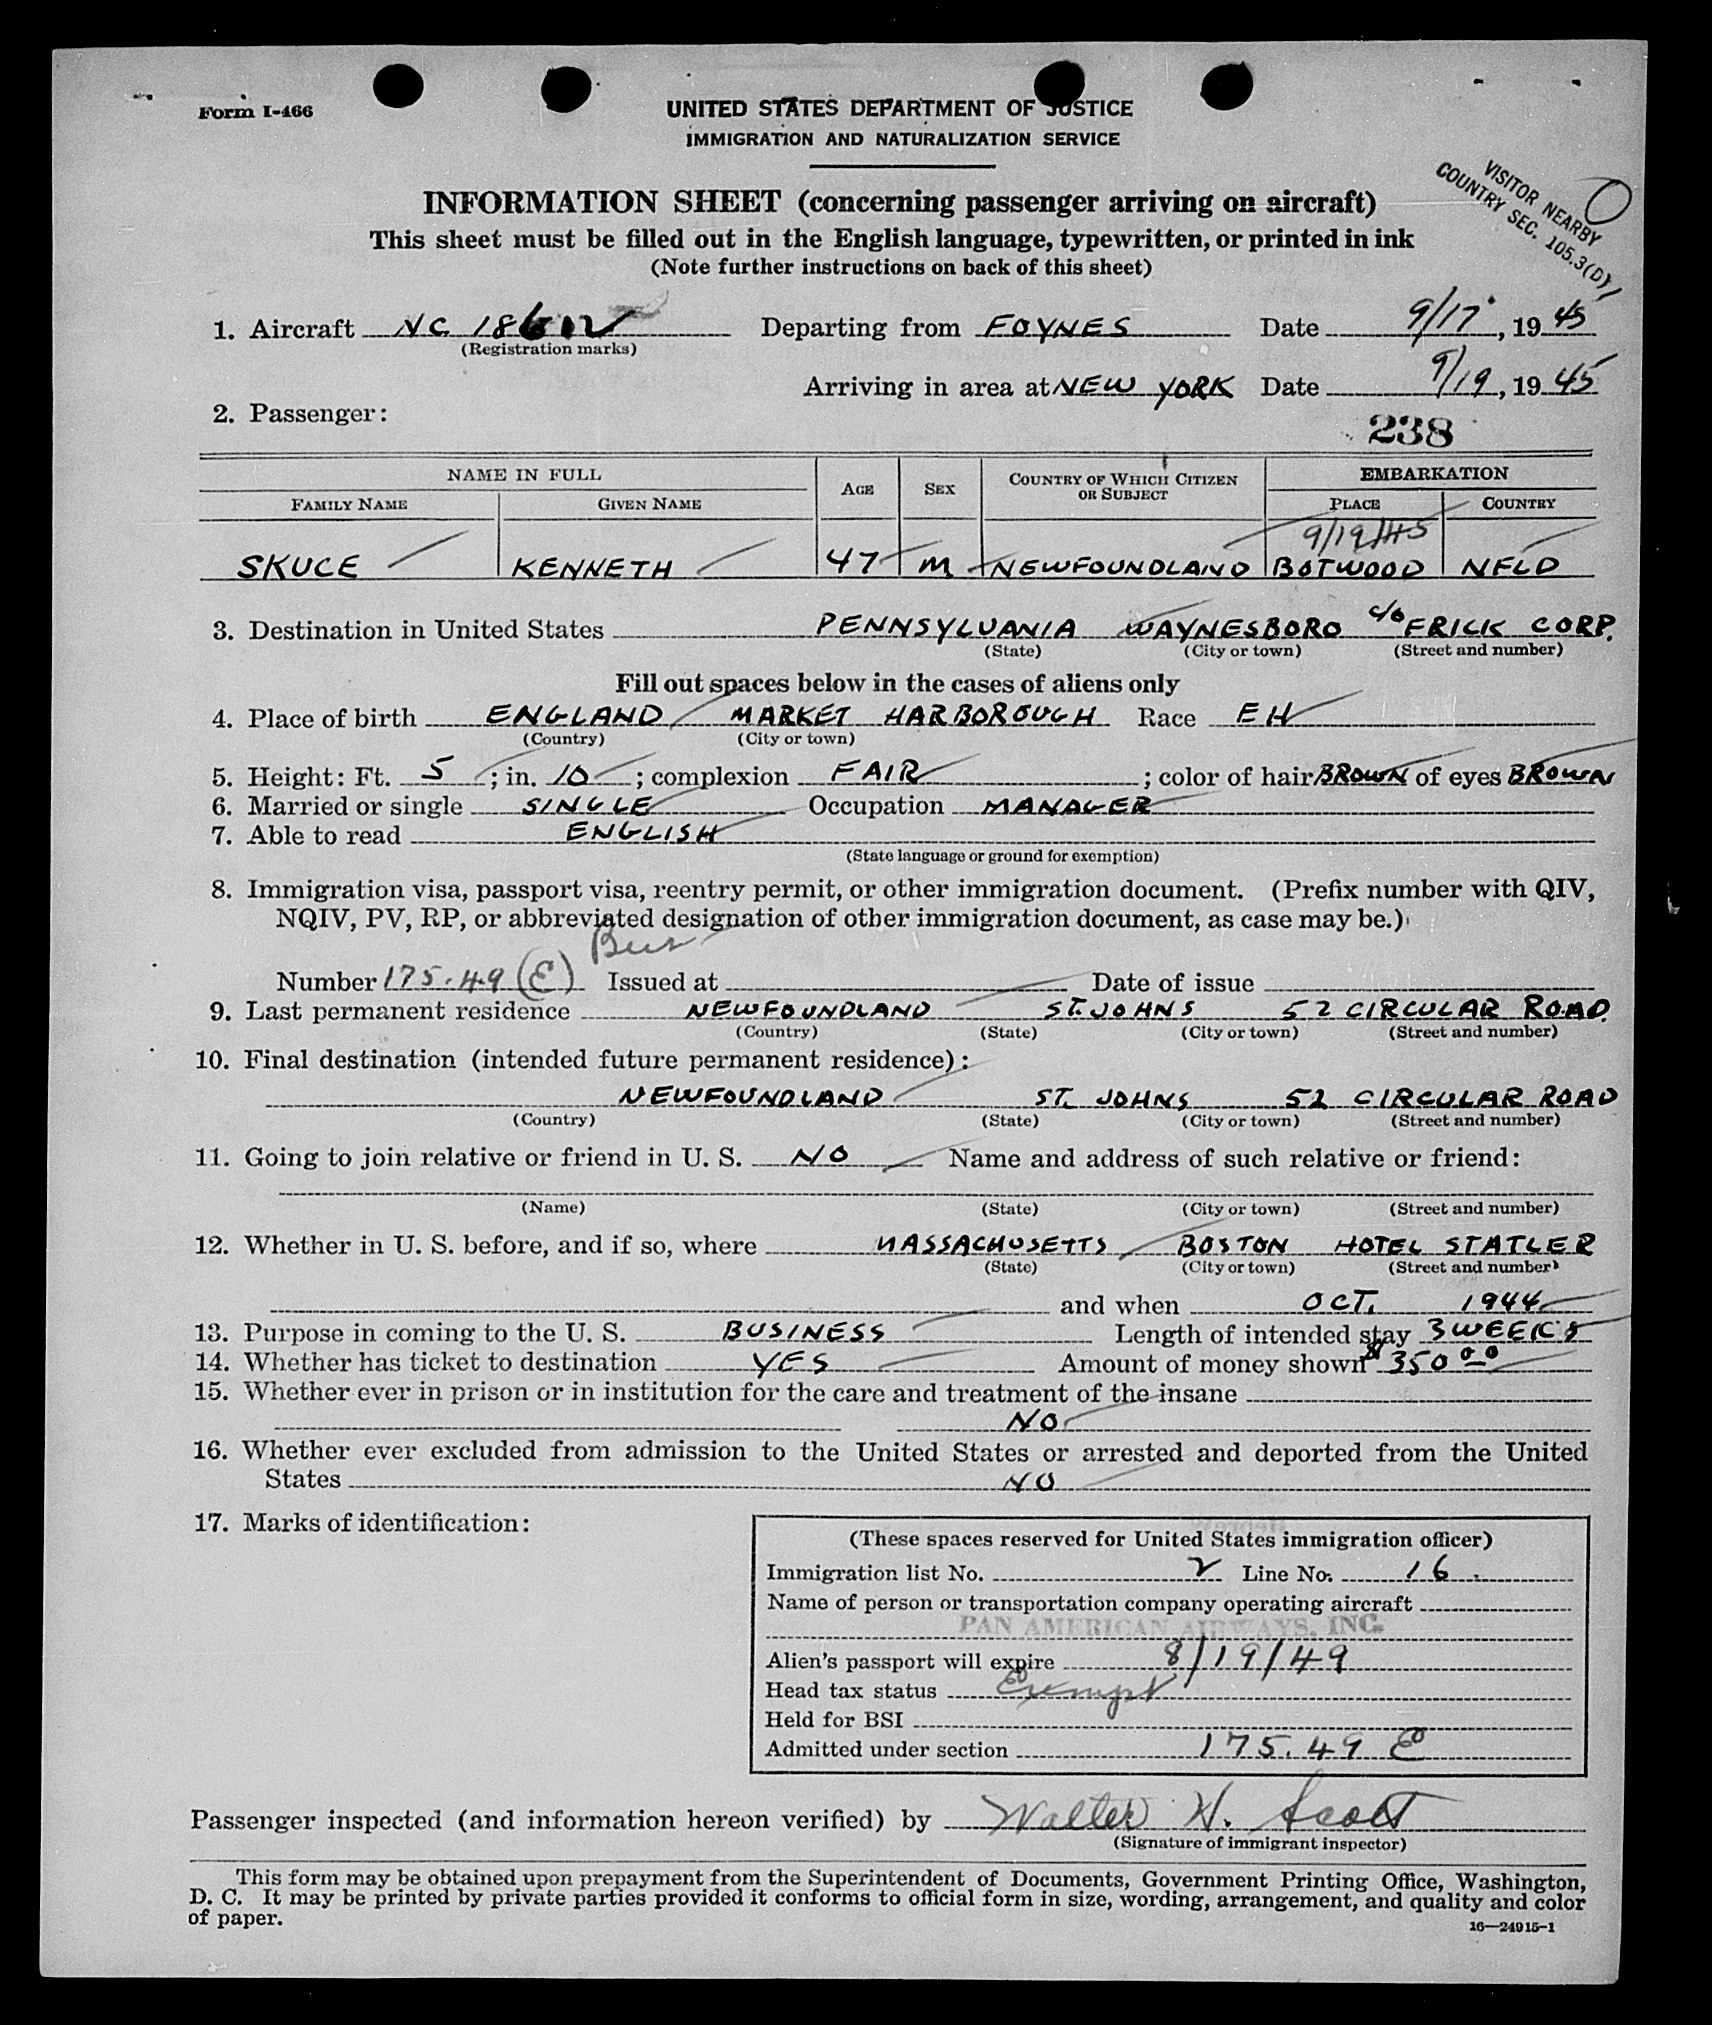 Form I-466
UNITED STATES DEPARTMENT OF JUSTICE
IMMIGRATION AND NATURALIZATION SERVICE
VISITOR NEARBY
COUNTRY SEC. 105.3(D)
INFORMATION SHEET (concerning passenger arriving on aircraft)
This sheet must be filled out in the English language, typewritten, or printed in ink
(Note further instructions on back of this sheet)
1. Aircraft NC 18612 Departing from FOYNES Date 9/17, 1945
(Registration marks)
Arriving in area at NEW YORK Date 9/19, 1945
2. Passenger:
238
NAME IN FULL AGE SEX COUNTRY OF WHICH CITIZEN OR SUBJECT EMBARKATION
FAMILY NAME GIVEN NAME PLACE COUNTRY
9/19/45
SKUCE KENNETH 47 M NEWFOUNDLAND BOTWOOD NFLD
3. Destination in United States PENNSYLVANIA WAYNESBORO c/o FRICK CORP.
(State) (City or town) (Street and number)
Fill out spaces below in the cases of aliens only
4. Place of birth ENGLAND MARKET HARBOROUGH Race EH
(Country) (City or town)
5. Height: Ft. 5; in. 10; complexion FAIR; color of hair BROWN of eyes BROWN
6. Married or single SINGLE Occupation MANAGER
7. Able to read ENGLISH
(State language or ground for exemption)
8. Immigration visa, passport visa, reentry permit, or other immigration document. (Prefix number with QIV,
NQIV, PV, RP, or abbreviated designation of other immigration document, as case may be.)
Bus
Number 175.49 (E) Issued at Date of issue
9. Last permanent residence NEWFOUNDLAND ST. JOHNS 52 CIRCULAR ROAD.
(Country) (State) (City or town) (Street and number)
10. Final destination (intended future permanent residence):
NEWFOUNDLAND ST. JOHNS 52 CIRCULAR ROAD
(Country) (State) (City or town) (Street and number)
11. Going to join relative or friend in U. S. NO Name and address of such relative or friend:
(Name) (State) (City or town) (Street and number)
12. Whether in U. S. before, and if so, where MASSACHUSETTS BOSTON HOTEL STATLER
(State) (City or town) (Street and number)
and when OCT. 1944
13. Purpose in coming to the U. S. BUSINESS Length of intended stay 3 WEEKS
14. Whether has ticket to destination YES Amount of money shown $350 00
15. Whether ever in prison or in institution for the care and treatment of the insane
NO
16. Whether ever excluded from admission to the United States or arrested and deported from the United
States NO
17. Marks of identification:
(These spaces reserved for United States immigration officer)
Immigration list No. 2 Line No. 16.
Name of person or transportation company operating aircraft
PAN AMERICAN AIRWAYS, INC.
Alien's passport will expire 8/19/49
Head tax status Exempt
Held for BSI
Admitted under section 175.49 E
Passenger inspected (and information hereon verified) by Walter H. Scott
(Signature of immigrant inspector)
This form may be obtained upon prepayment from the Superintendent of Documents, Government Printing Office, Washington,
D. C. It may be printed by private parties provided it conforms to official form in size, wording, arrangement, and quality and color
of paper.
16—24915-1